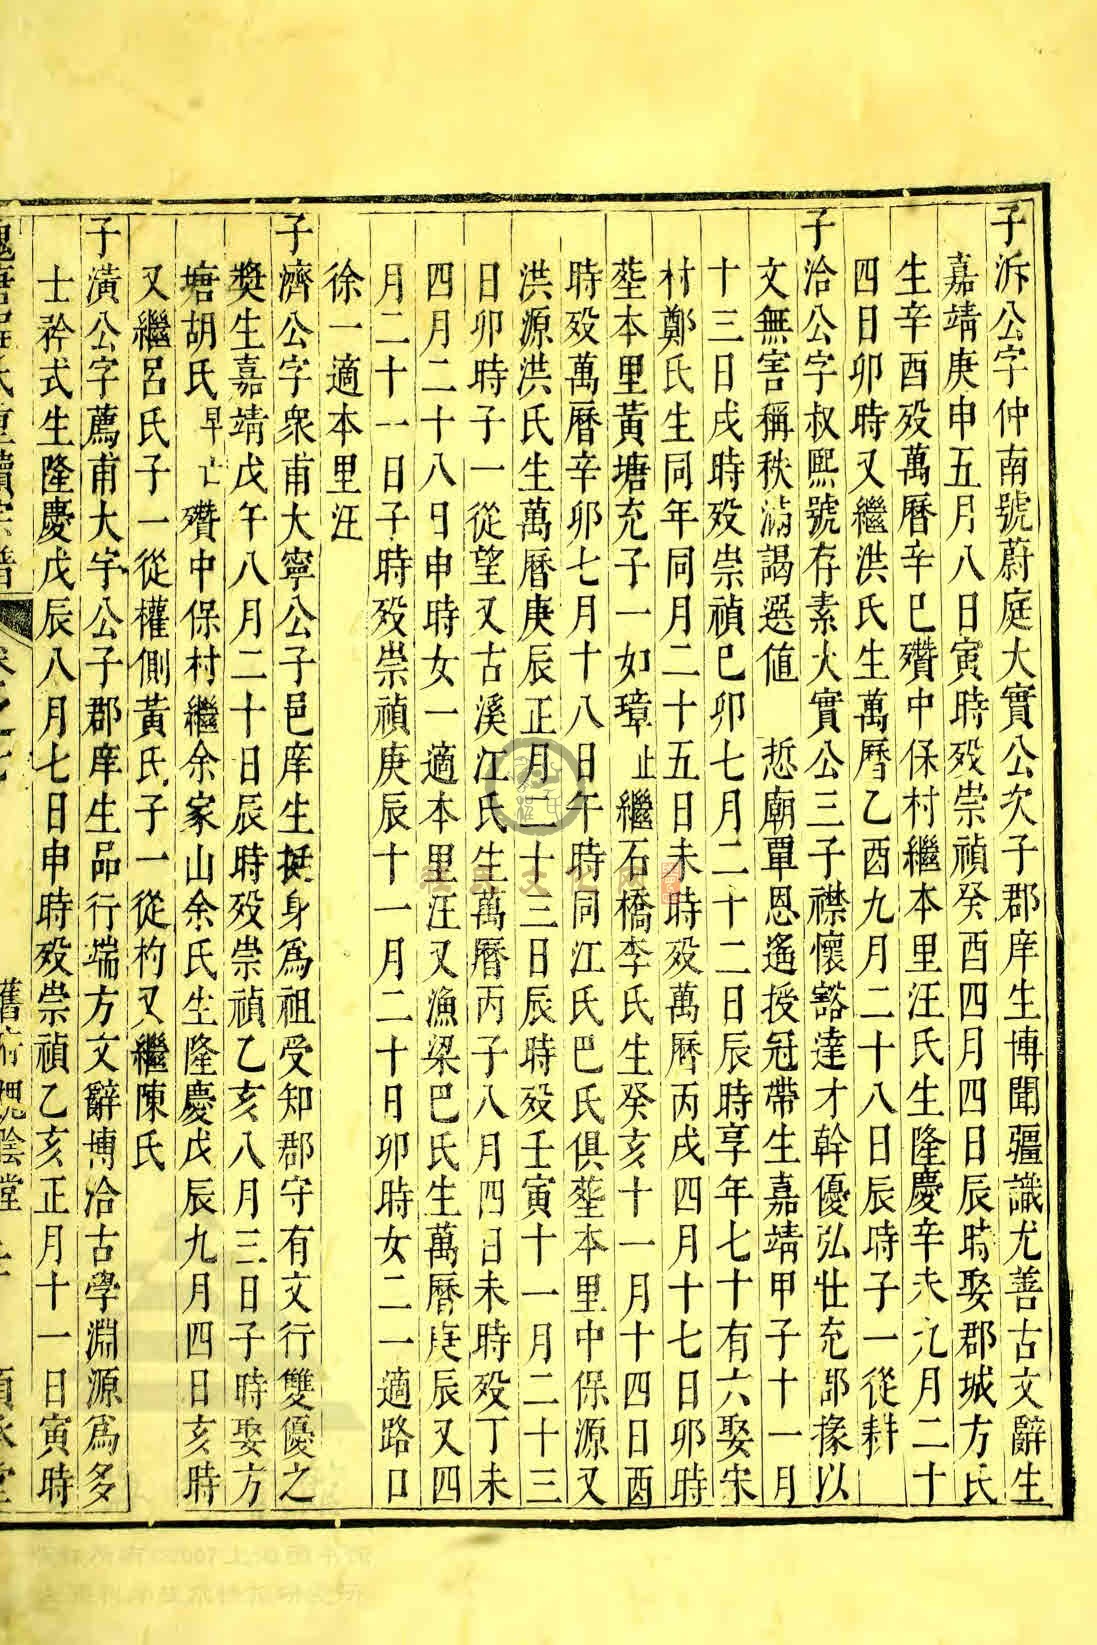 子泝公字仲南號蔚庭大實公次子郡庠生博聞疆識尤善古文辭生
嘉靖庚申五月八日寅時歿崇禎癸酉四月四日辰時娶郡城方氏
生辛酉歿萬曆辛巳殯中保村繼本里汪氏生隆慶辛未九月二十
四日卯時又繼洪氏生萬曆乙酉九月二十八日辰時子一從耕
子洽公字叔熙號存素大實公三子襟懷豁達才幹優弘壯充部掾以
文無害稱秩滿謁選值 悊廟覃恩遙授冠帶生嘉靖甲子十一月
十三日戌時歿崇禎己卯七月二十二日辰時享年七十有六娶宋
村鄭氏生同年同月二十五日未時歿萬曆丙戌四月十七日卯時
塟本里黃塘充子一如璋止繼石橋李氏生癸亥十一月十四日酉
時歿萬曆辛卯七月十八日午時同江氏巴氏俱塟本里中保源又
洪源洪氏生萬曆庚辰正月二十三日辰時歿壬寅十一月二十三
日卯時子一從望又古溪江氏生萬曆丙子八月四日未時歿丁未
四月二十八日申時女一適本里汪又漁梁巴氏生萬曆庚辰又四
月二十一日子時歿崇禎庚辰十一月二十日卯時女二一適路口
徐一適本里汪
子濟公字衆甫大寧公子邑庠生挺身爲祖受知郡守有文行雙優之
獎生嘉靖戊午八月二十日辰時歿崇禎乙亥八月三日子時娶方
塘胡氏早亡殯中保村繼余家山余氏生隆慶戊辰九月四日亥時
又繼呂氏子一從權側黃氏子一從杓又繼陳氏
子濆公字薦甫大字公子郡庠生品行端方文辭博洽古學淵源爲多
士矜式生隆慶戊辰八月七日申時歿崇禎乙亥正月十一日寅時